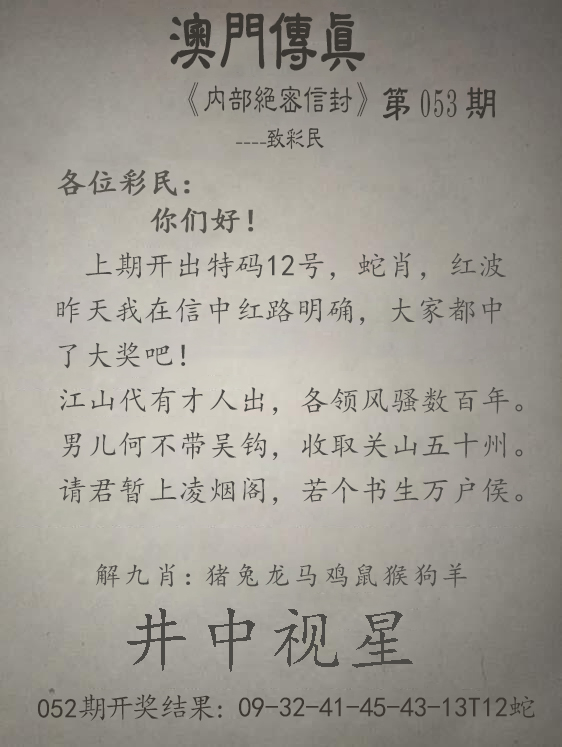 澳門傳眞
《内部絕密信封》第053期
----致彩民
各位彩民：
你们好！
上期开出特码12号，蛇肖，红波
昨天我在信中红路明确，大家都中
了大奖吧！
江山代有才人出，各领风骚数百年。
男儿何不带吴钩，收取关山五十州。
请君暂上凌烟阁，若个书生万户侯。
解九肖：猪兔龙马鸡鼠猴狗羊
井中视星
052期开奖结果：09-32-41-45-43-13T12蛇